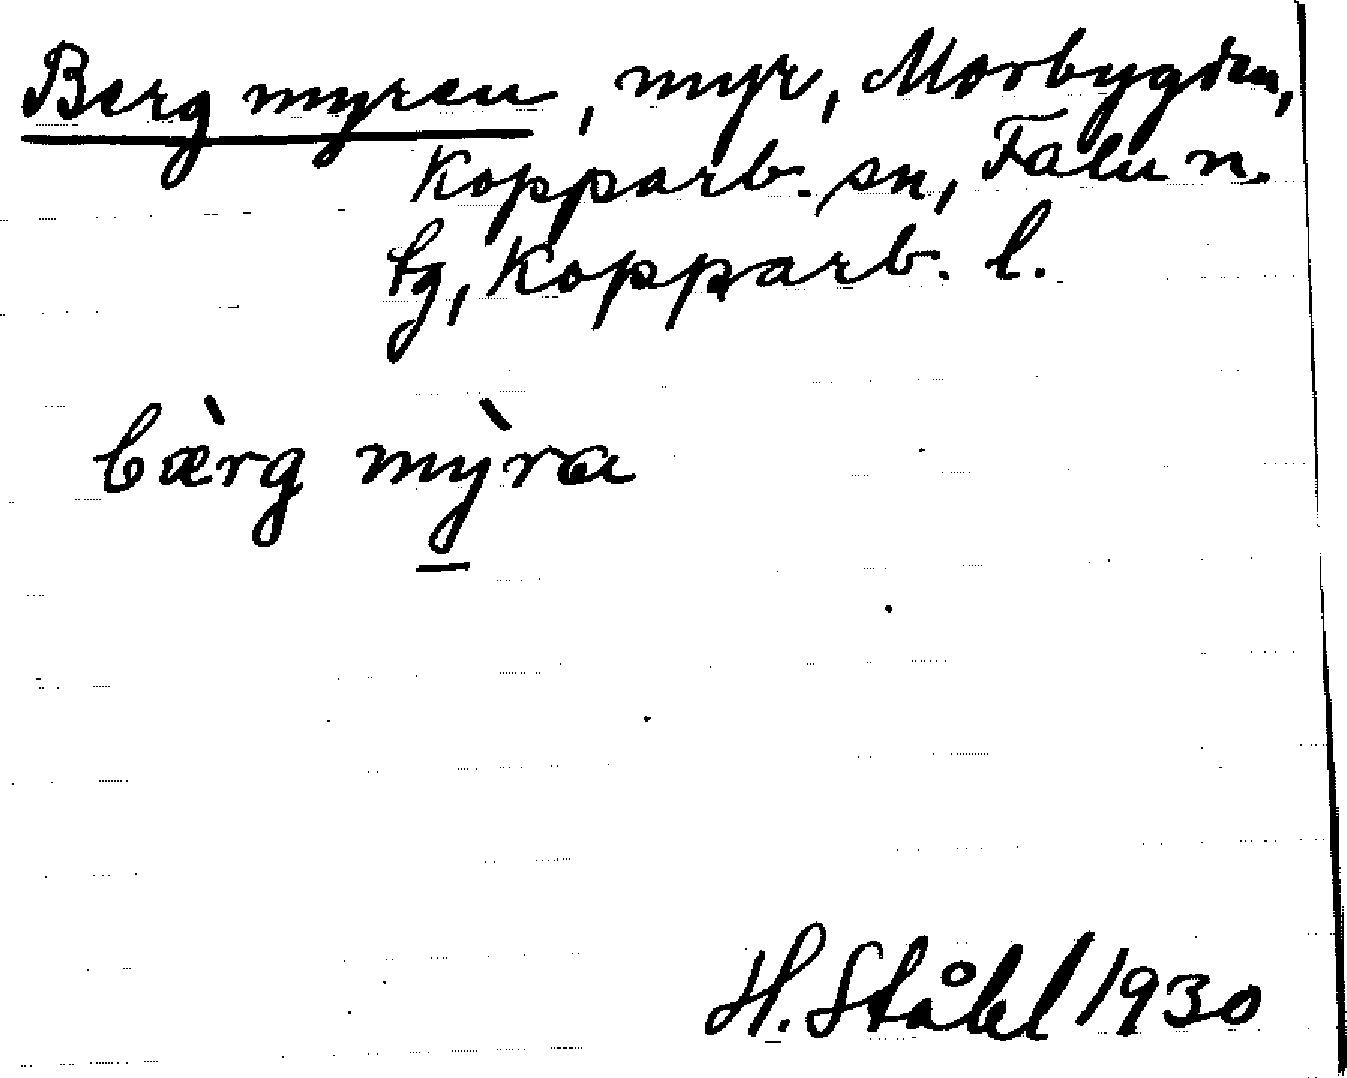 Bergmyren, myr, Morbygden,
Kopparb. sn, Falu n.
tg, Kopparb. l.
bæ̀rg mỳra
H. Ståhl 1930